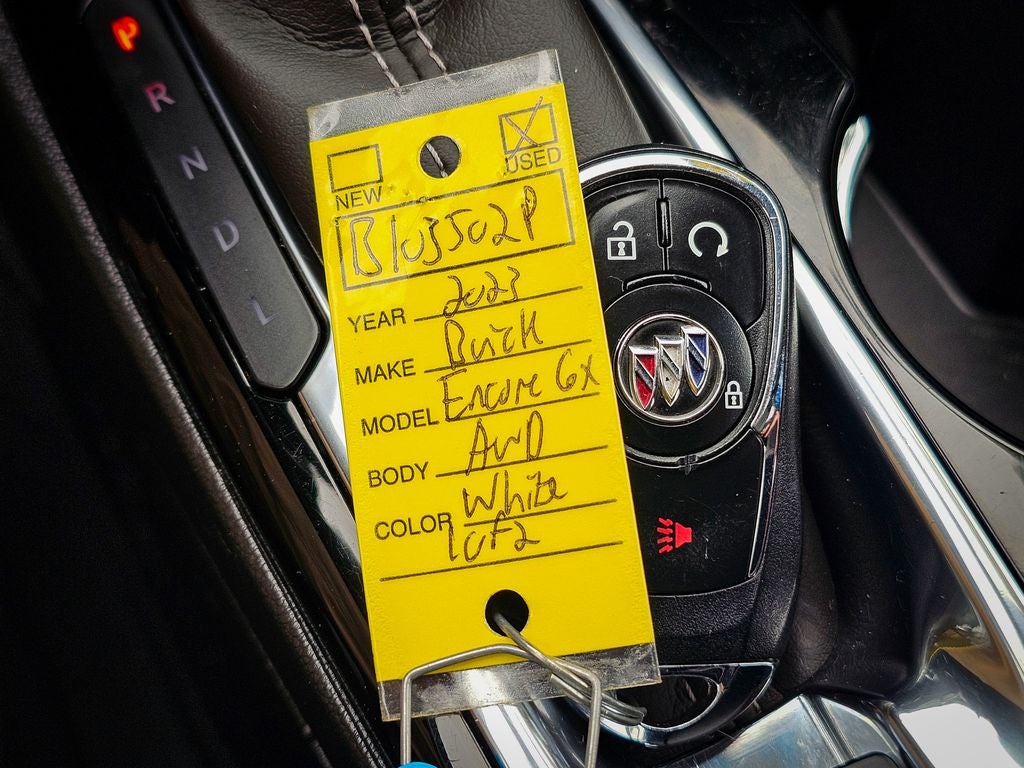 P
R
N
D
L
NEW
USED
B103502P
YEAR 2023
MAKE Buick
MODEL Encore Gx
BODY AWD
COLOR White
1 of 2